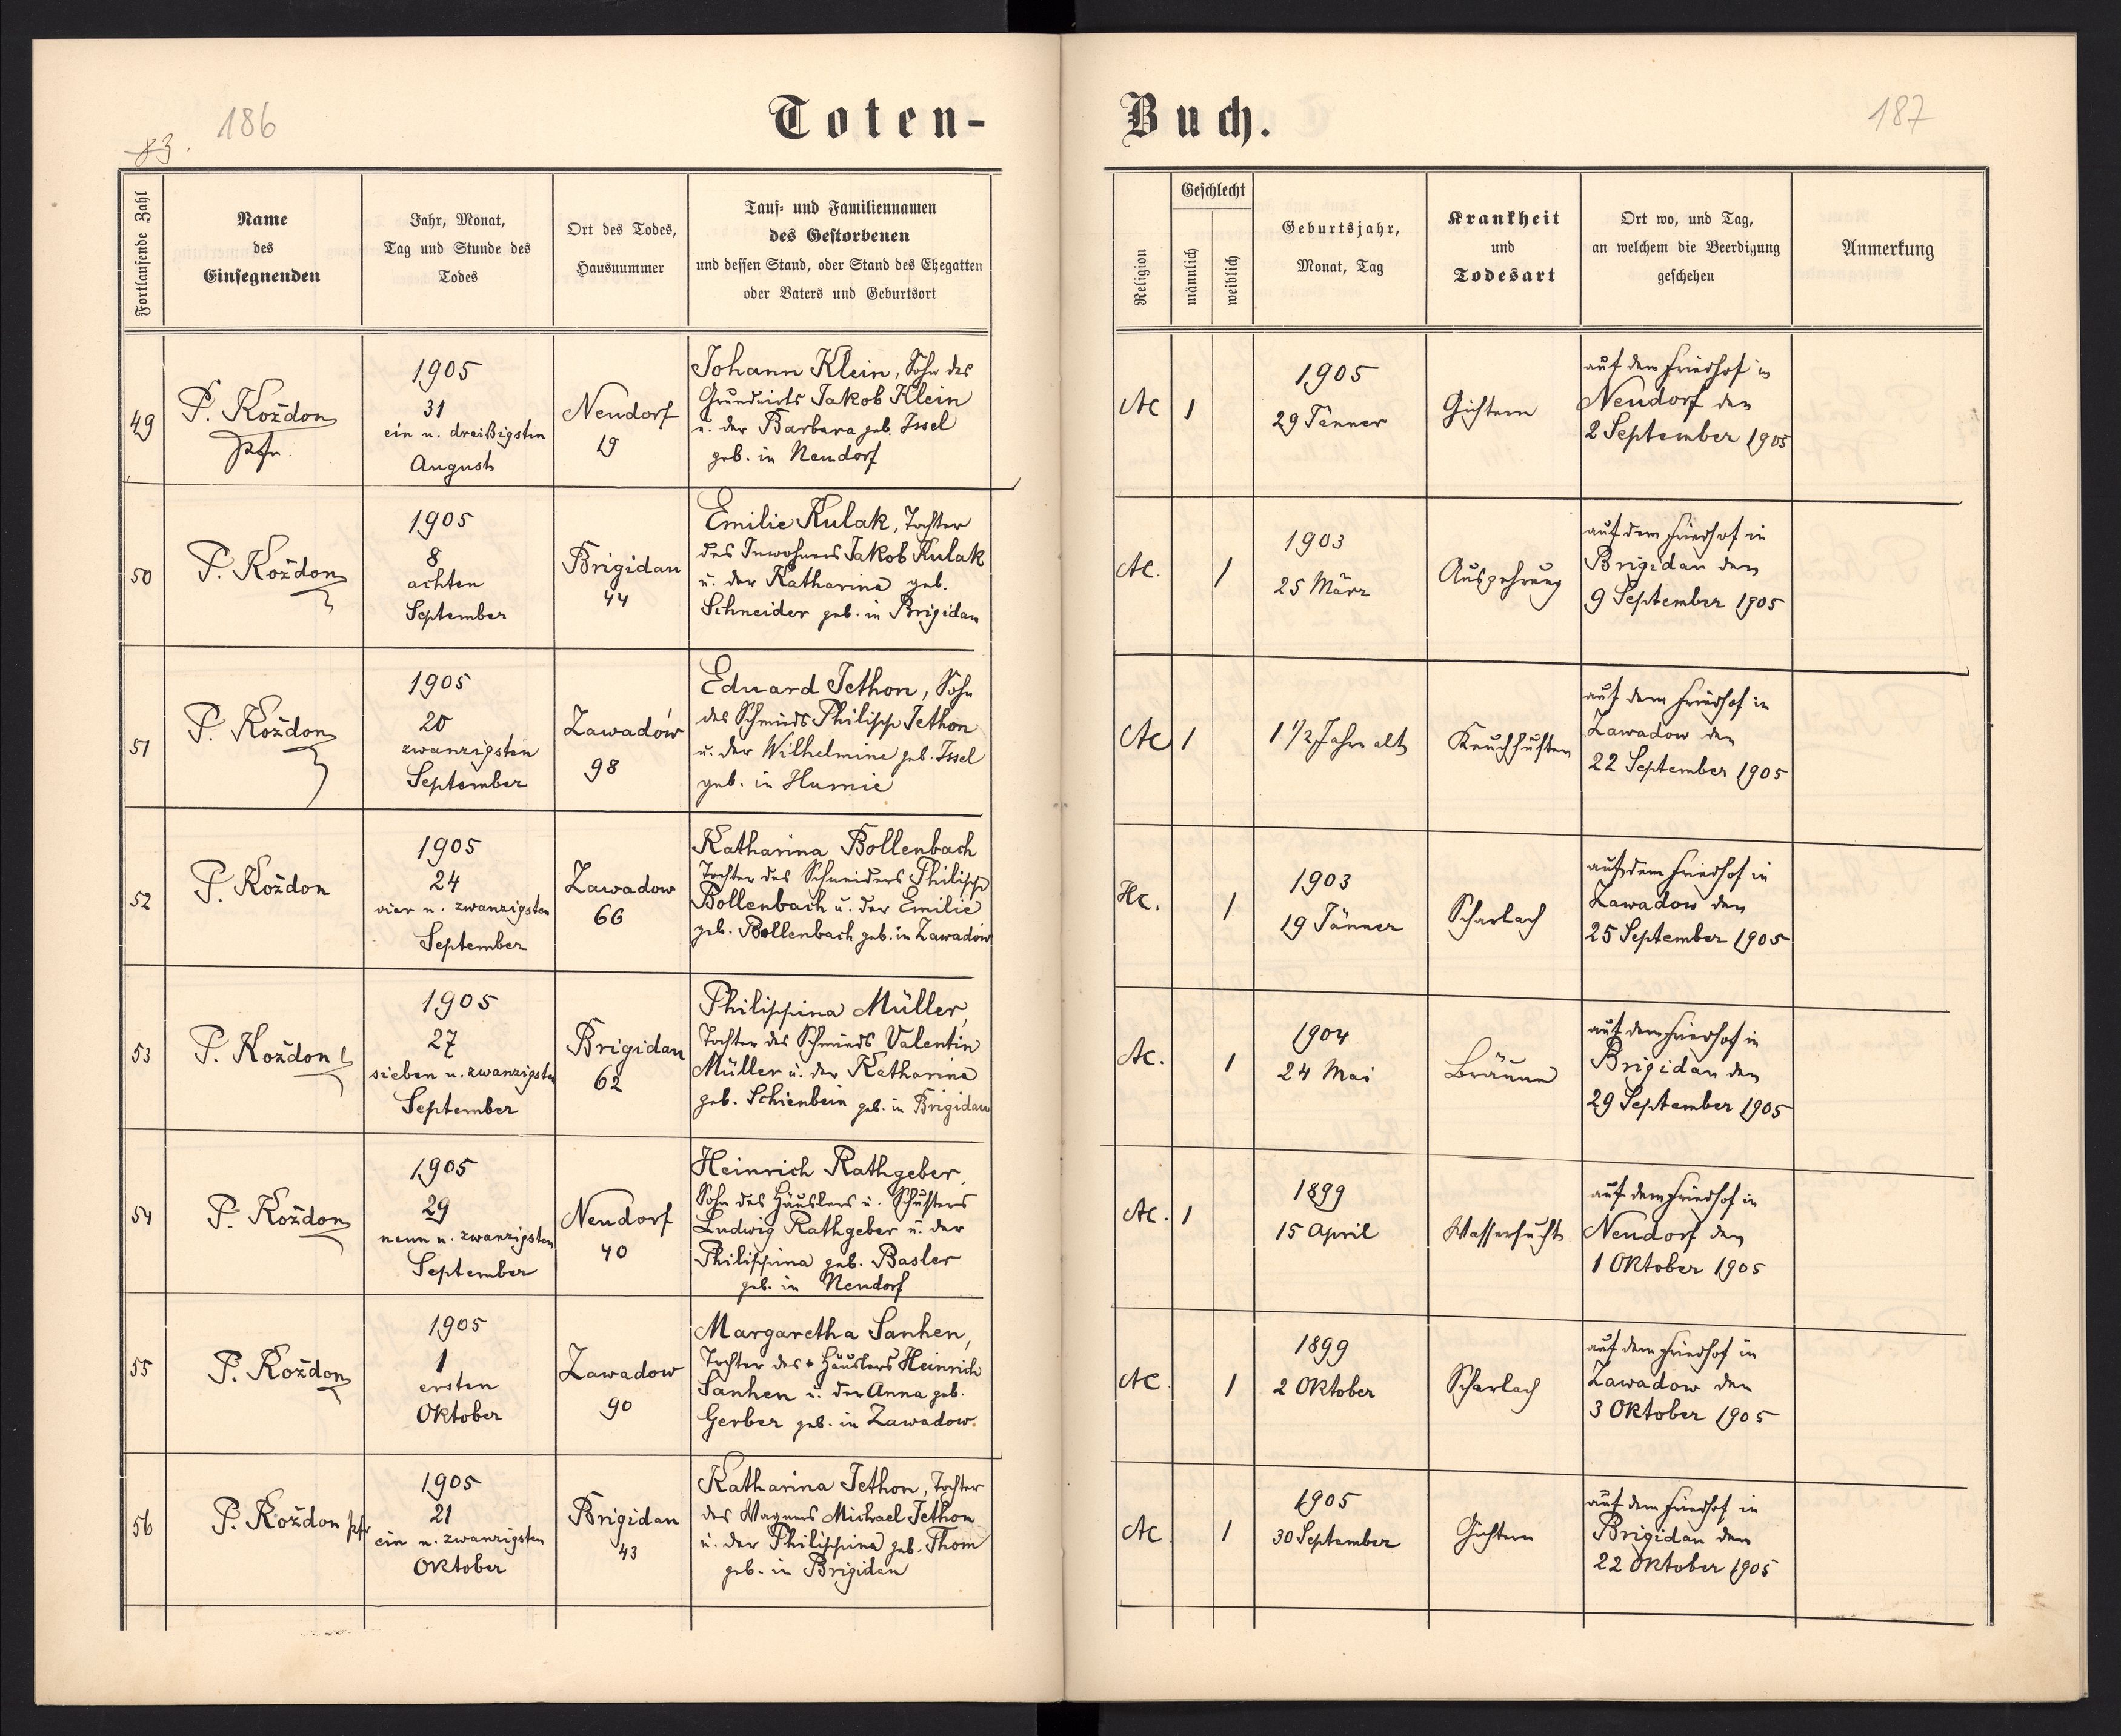 186
83.
Toten-
Fortlaufende Zahl
Name
des
Einsegnenden
Jahr, Monat,
Tag und Stunde des
Todes
Ort des Todes,
Hausnummer
Tauf- und Familiennamen
des Gestorbenen
und dessen Stand, oder Stand des Ehegatten
oder Vaters und Geburtsort
49
P. Koždon
Pfr.
1905
31
ein u. dreißigsten
August
Neudorf
19
Johann Klein, Sohn des
Grundwirts Jakob Klein
u. der Barbara geb. Issel
geb. in Neudorf
50
P. Koždon
1905
8
achten
September
Brigidau
44
Emilie Kulak, Tochter
des Inwohners Jakob Kulak
u. der Katharina geb.
Schneider geb. in Brigidau
51
P. Koždon
1905
20
zwanzigsten
September
Zawadów
98
Eduard Jethon, Sohn
des Schmieds Philipp Jethon
u. der Wilhelmine geb. Issel
geb. in Humnie
52
P. Koždon
1905
24
vier u. zwanzigsten
September
Zawadow
66
Katharina Bollenbach
Tochter des Schneiders Philipp
Bollenbach u. der Emilie
geb. Bollenbach geb. in Zawadów
53
P. Koždon
1905
27
sieben u. zwanzigsten
September
Brigidau
62
Philippina Müller,
Tochter des Schmieds Valentin
Müller u. der Katharina
geb. Schienbein geb. in Brigidau
54
P. Koždon
1905
29
neun u. zwanzigsten
September
Neudorf
40
Heinrich Rathgeber,
Sohn des Häuslers u. Schusters
Ludwig Rathgeber u. der
Philippina geb. Basler
geb. in Neudorf
55
P. Koždon
1905
1
ersten
Oktober
Zawadow
90
Margaretha Sanhen,
Tochter des + Häuslers Heinrich
Sanhen u. der Anna geb.
Gerber geb. in Zawadow.
56
P. Koždon pfr
1905
21
ein u. zwanzigsten
Oktober
Brigidau
43
Katharina Jethon, Tochter
des Wagners Michael Jethon
u. der Philippina geb. Thom
geb. in Brigidau
187
Buch.
Religion
Geschlecht
männlich
weiblich
Geburtsjahr,
Monat, Tag
Krankheit
und
Todesart
Ort wo, und Tag,
an welchem die Beerdigung
geschehen
Anmerkung
AC
1
1905
29 Jänner
Gichtern
auf dem Friedhof in
Neudorf den
2 September 1905
AC.
1
1903
25 März
Auszehrung
auf dem Friedhof in
Brigidau den
9 September 1905
AC
1
1 1/2 Jahre alt
Keuchhusten
auf dem Friedhof in
Zawadow den
22 September 1905
HC.
1
1903
19 Jänner
Scharlach
auf dem Friedhof in
Zawadow den
25 September 1905
AC.
1
1904
24 Mai
Bräune
auf dem Friedhof in
Brigidau den
29 September 1905
AC.
1
1899
15 April
Wassersucht
auf dem Friedhof in
Neudorf den
1 Oktober 1905
AC.
1
1899
2 Oktober
Scharlach
auf dem Friedhof in
Zawadow den
3 Oktober 1905
AC.
1
1905
30 September
Gichtern
auf dem Friedhof in
Brigidau den
22 Oktober 1905